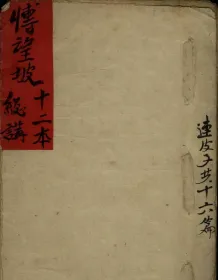 博望坡
十二本
總講
連皮子共十六篇